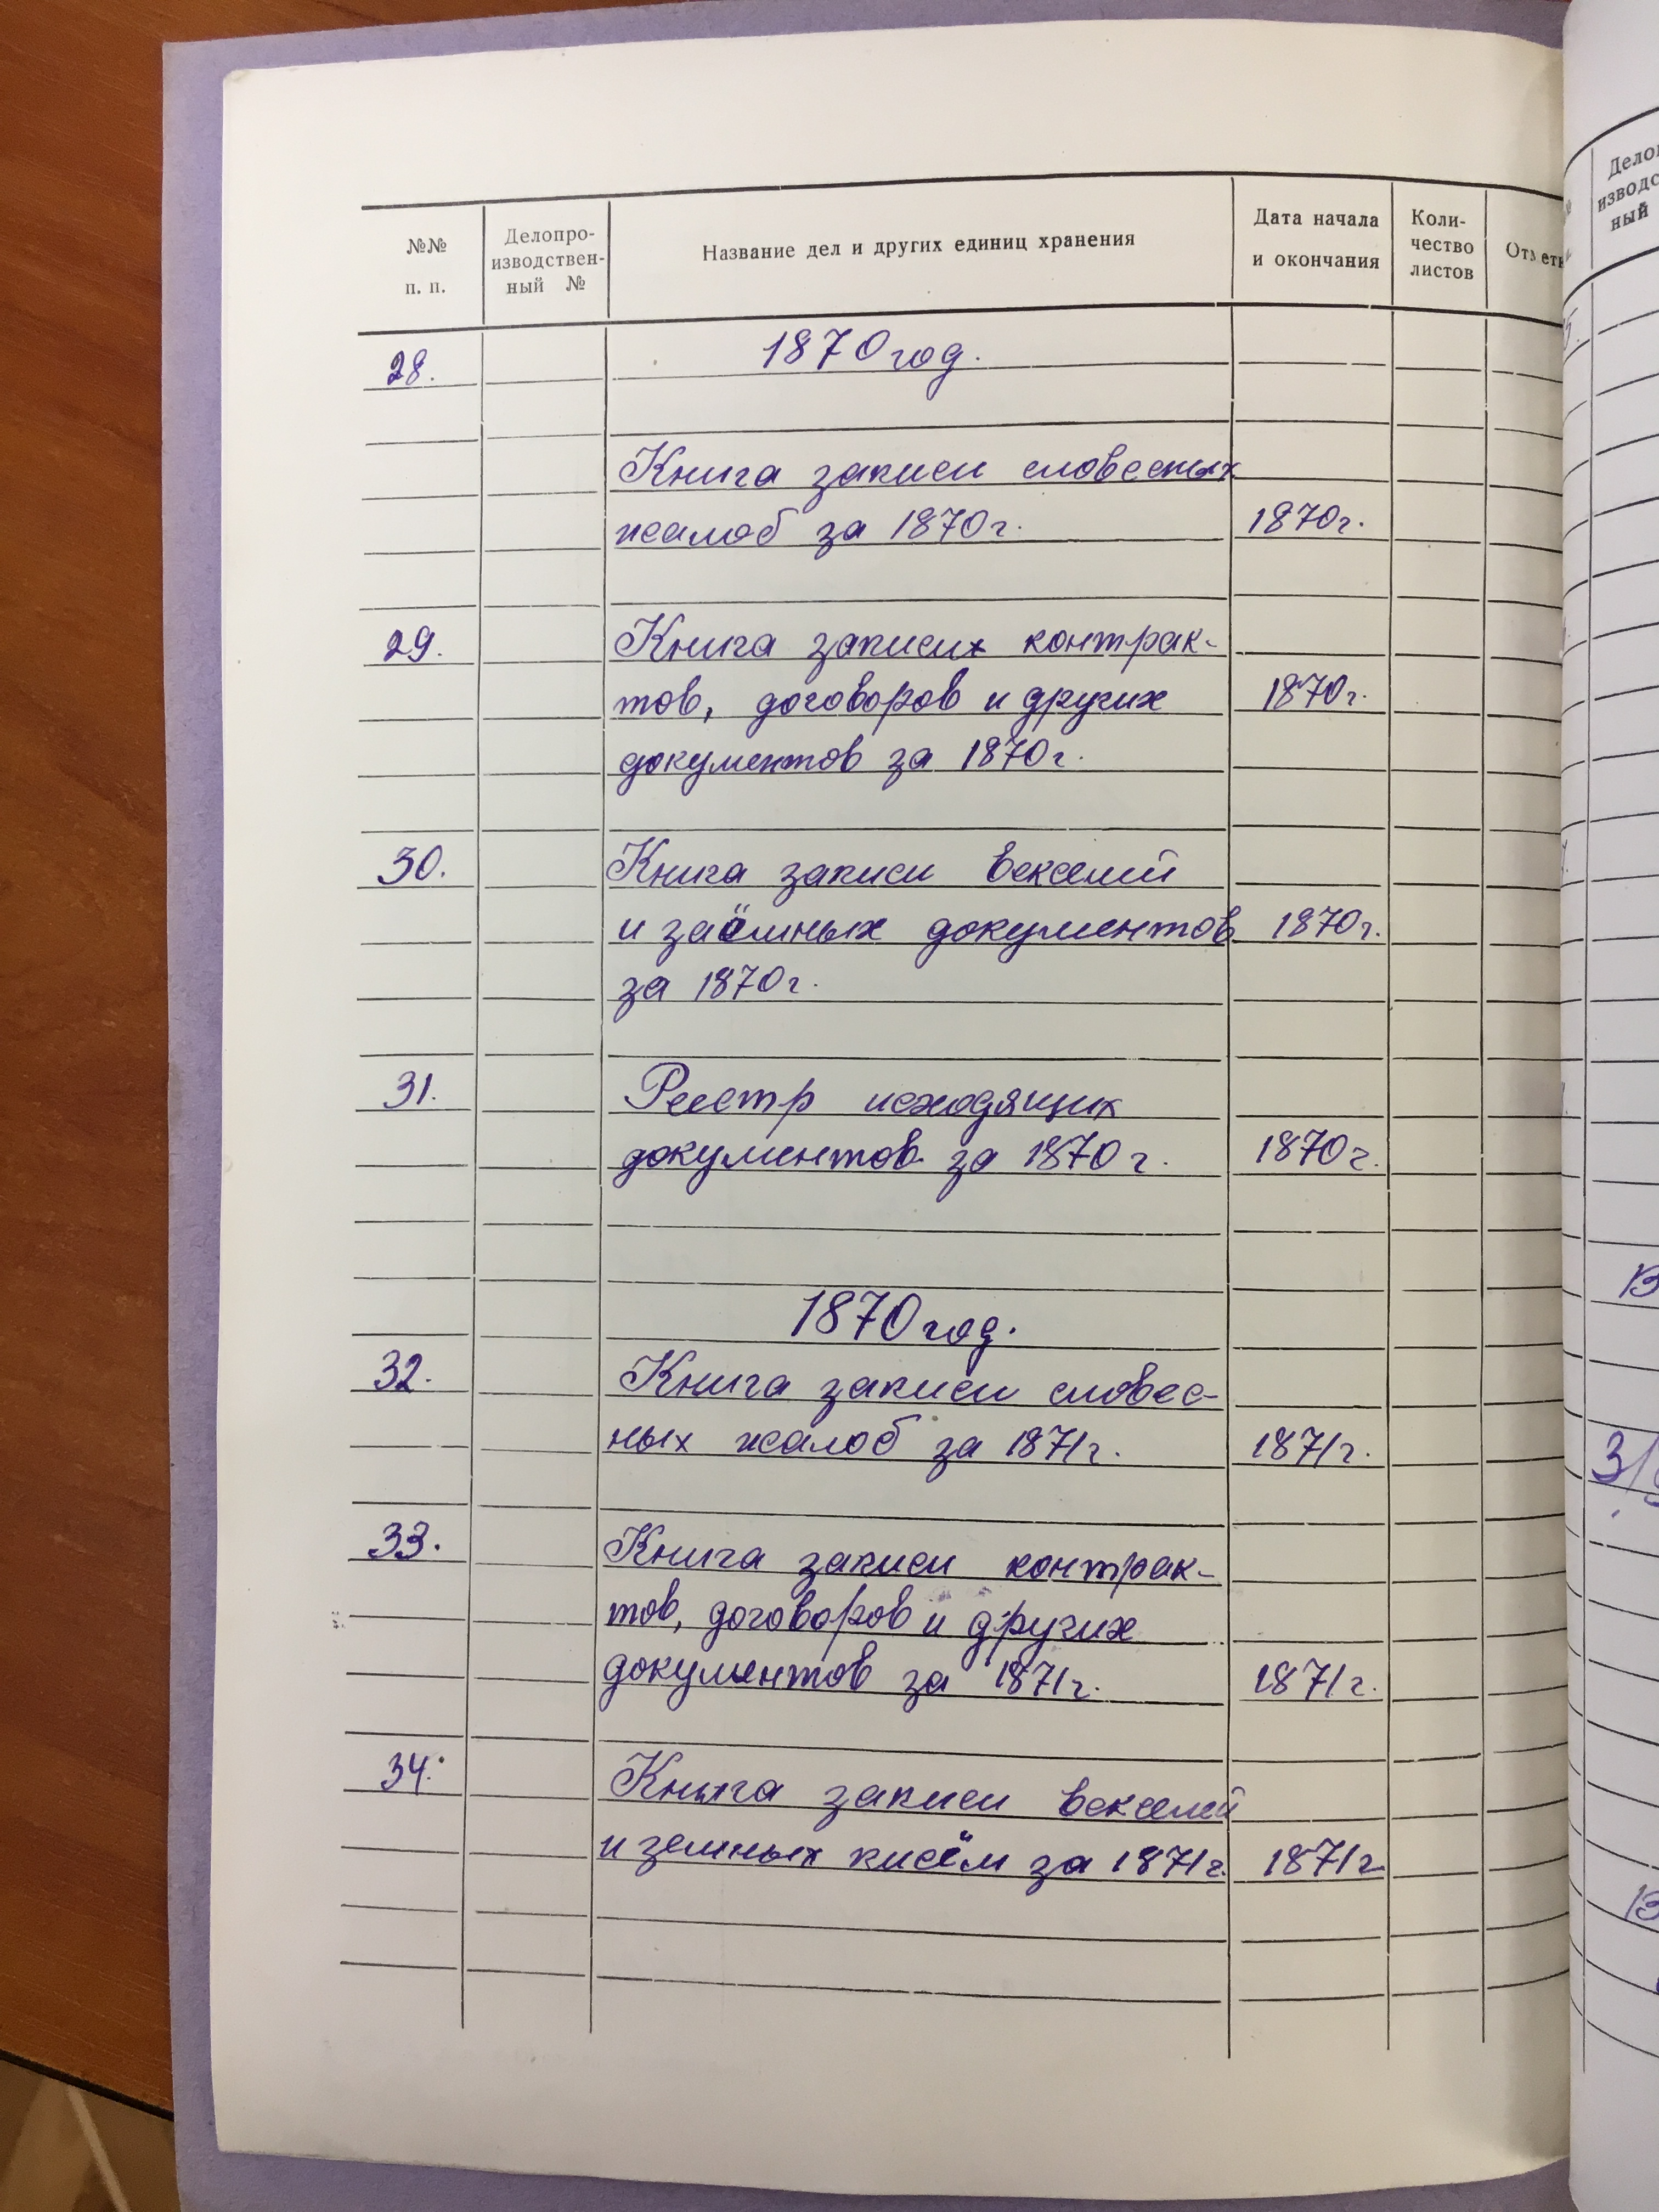 №№ п. п.
Делопро-
изводствен-
ный №
Название дел и других единиц хранения
Дата начала
и окончания
Коли-
чество
листов
28. 1870 год.
Книга записи словесных
жалоб за 1870 г. 1870 г.
29. Книга записих контрак-
тов, договоров и других 1870 г.
документов за 1870 г.
30. Книга записи векселей
и заёмных документов 1870 г.
за 1870 г.
31. Реестр исходящих
документов за 1870 г. 1870 г.
1870 год.
32. Книга записи словес-
ных жалоб за 1871 г. 1871 г.
33. Книга записи контрак-
тов, договоров и других
документов за 1871 г. 1871 г.
34. Книга записи векселей
и земных писём за 1871 г. 1871 г
Дело
изводс
ный